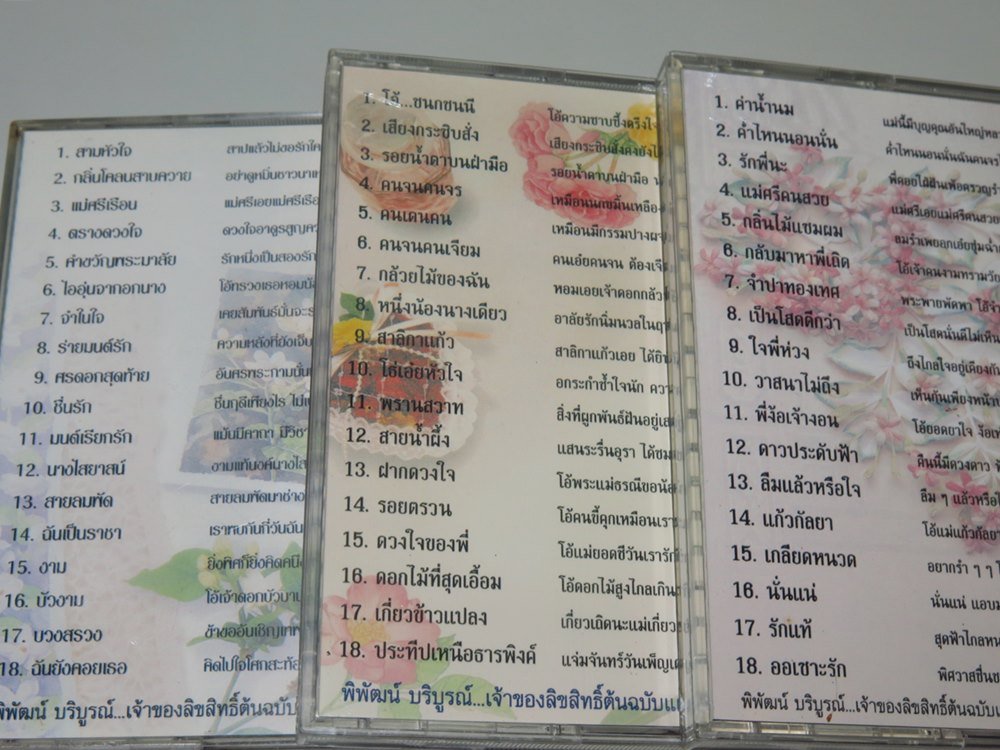 1. สามหัวใจ สาปแล้วไม่ขอรักใค
2. กลิ่นโคลนสาบควาย อย่าดูหมิ่นชาวนาเห
3. แม่ศรีเรือน แม่ศรีเอยแม่ศรีเรือ
4. ตรางดวงใจ ดวงใจอาดูรสูญคว
5. คำขวัญพระมาลัย รักหนึ่งเป็นสองรัก
6. ไออุ่นจากอกนาง
7. จำในใจ เคยสัมพันธ์มั่นจะร
8. ร่ายมนต์รัก ความหลังที่ยังเจ็บ
9. ศรดอกสุดท้าย
10. ชื่นรัก
11. มนต์เรียกรัก แม้นมีคาถา มีวิชา
12. นางไสยาสน์
13. สายลมพัด สายลมพัดมาช่าง
14. ฉันเป็นราชา เราพบกันที่วันฉัน
15. งาม ยิ่งคิดก็ยิ่งคิดคนึ
16. บัวงาม โอ้เจ้าดอกบัวบาน
17. บวงสรวง ข้าขออันเชิญเทพ
18. ฉันยังคอยเธอ คิดไปใจโศกสะท้อ
พิพัฒน์ บริบูรณ์...เจ้าของลิขสิทธิ์ต้นฉบับ
1. โอ้...ชนกชนนี โอ้ความซาบซึ้งตรึงใจ
2. เสียงกระซิบสั่ง เสียงกระซิบสั่งคงยังไ
3. รอยน้ำตาบนฝ่ามือ รอยน้ำตาบนฝ่ามือ
4. คนจนคนจร
5. คนเดนคน เหมือนมีกรรมปางผจ
6. คนจนคนเจียม คนเอ๋ยคนจน ต้องเจี
7. กล้วยไม้ของฉัน หอมเอยเจ้าดอกกล้ว
8. หนึ่งน้องนางเดียว อาลัยรักนิ่มนวลในฤท
9. สาลิกาแก้ว สาลิกาแก้วเอย ได้ยิน
10. โธ่เอ๋ยหัวใจ อกระกำช้ำใจนัก ควา
11. พรานสวาท สิ่งที่ผูกพันธ์ฝันอยู่เส
12. สายน้ำผึ้ง แสนระรื่นอุรา ได้ชม
13. ฝากดวงใจ โอ้พระแม่ธรณีขอน้อ
14. รอยตรวน โอ้คนขี้คุกเหมือนเรา
15. ดวงใจของพี่ โอ้แม่ยอดชีวันเรารัก
16. ดอกไม้ที่สุดเอื้อม โอ้ดอกไม้สูงไกลเกิน
17. เกี่ยวข้าวแปลง เกี่ยวเถิดนะแม่เกี่ยว
18. ประทีปเหนือธารพิงค์ แจ่มจันทร์วันเพ็ญเด
พิพัฒน์ บริบูรณ์...เจ้าของลิขสิทธิ์ต้นฉบับแ
1. ค่าน้ำนม แม่นี้มีบุญคุณอันใหญ่หล
2. ค่ำไหนนอนนั่น ค่ำไหนนอนนั่นฉันคนจร
3. รักพี่นะ
4. แม่ศรีคนสวย แม่ศรีเอยแม่ศรีคนสวย
5. กลิ่นไม้แซมผม
6. กลับมาหาพี่เถิด โอ้เจ้าคนงามทรามวัย
7. จำปาทองเทศ พระพายพัดพา โอ้จำ
8. เป็นโสดดีกว่า เป็นโสดนั่นดีไม่เห็น
9. ใจพี่ห่วง ถึงไกลใจอยู่เคียงกัน
10. วาสนาไม่ถึง เห็นกันเพียงหน้า
11. พี่ง้อเจ้างอน โอ้ยอดยาใจ ง้อเท่
12. ดาวประดับฟ้า คืนนี้มีดวงดาว
13. ลืมแล้วหรือไจ ลืม ๆ แล้วหรือไ
14. แก้วกัลยา โอ้แม่แก้วกัลยา
15. เกลียดหนวด อยากรำ ๆ
16. นั่นแน่ นั่นแน่ แอบม
17. รักแท้ สุดฟ้าไกลหม
18. ออเซาะรัก พิศวาสชื่นช
พิพัฒน์ บริบูรณ์...เจ้าของลิขสิทธิ์ต้